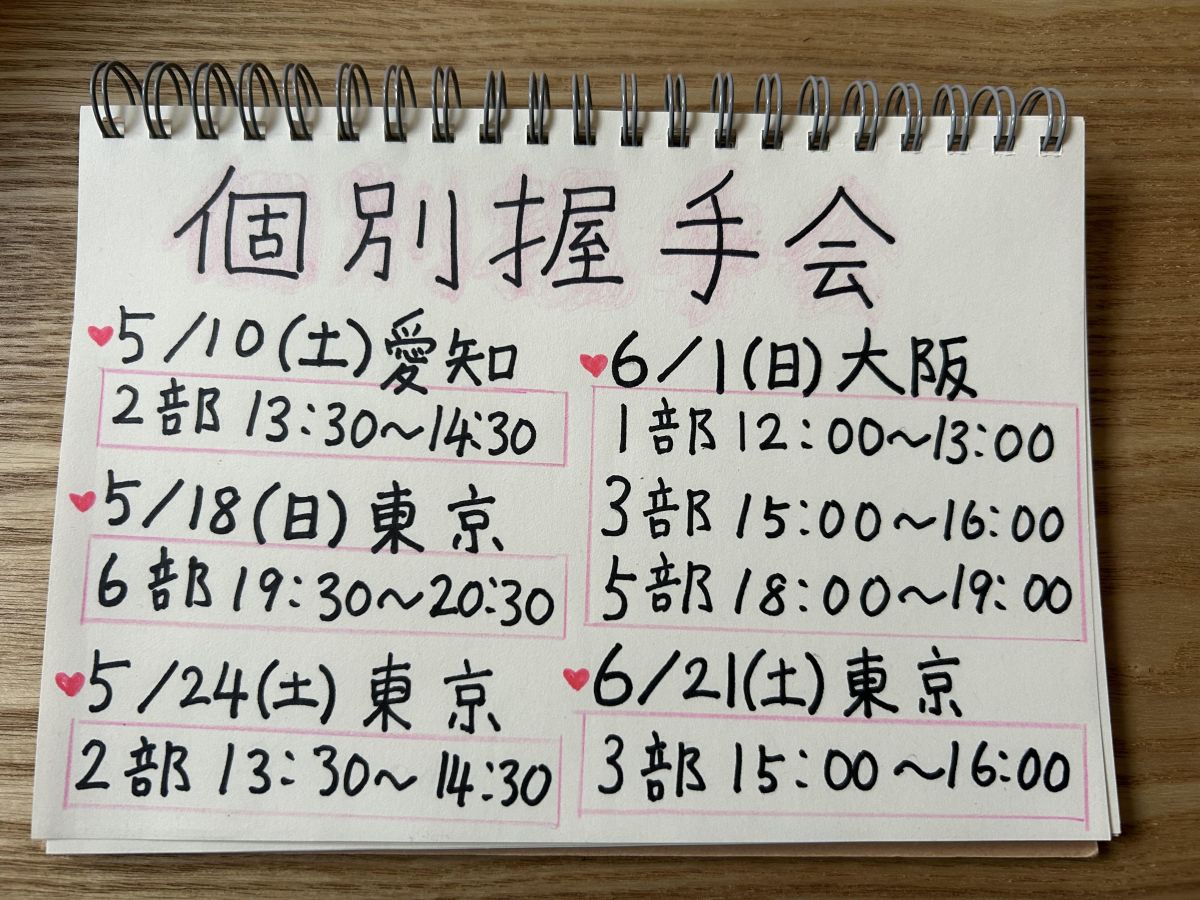 個別握手会
5/10(土)愛知
2部 13:30〜14:30
5/18(日)東京
6部 19:30〜20:30
5/24(土)東京
2部 13:30〜14:30
6/1(日)大阪
1部 12:00〜13:00
3部 15:00〜16:00
5部 18:00〜19:00
6/21(土)東京
3部 15:00〜16:00